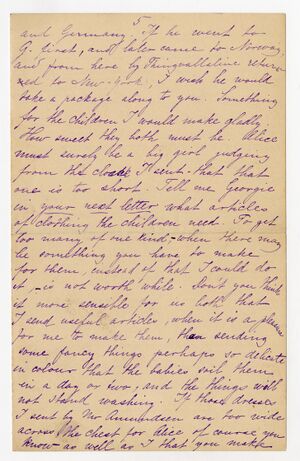 5
and Germany. If he went to
G. first, and later came to Norway,
and from here by Thingvallaline return
ned to New-York, I wish he would
take a package along to you. Something
for the children I would make gladly.
How sweet they both must be. Alice
must surely be a big girl judging
from the cloak I sent - that that
one is too short. Tell me Georgie
in your next letter what articles
of clothing the children need. To get
too many of one kind - when there may
be something you have to make
for them, instead of that I could do
it - is not worth while. Don't you think
it more sensible for us both that
I send useful articles, when it is a pleasure
for me to make them, than sending
some fancy things perhaps so delicate
in colour that the babies soil them
in a day or two, and the things will
not stand washing. If those dresses
I sent by Mr Amundsen are too wide
across the chest for Alice of course you
know as well as I that you make